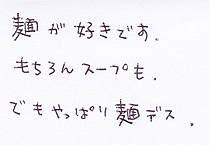 麺が好きです.
もちろんスープも.
でもやっぱり麺デス.